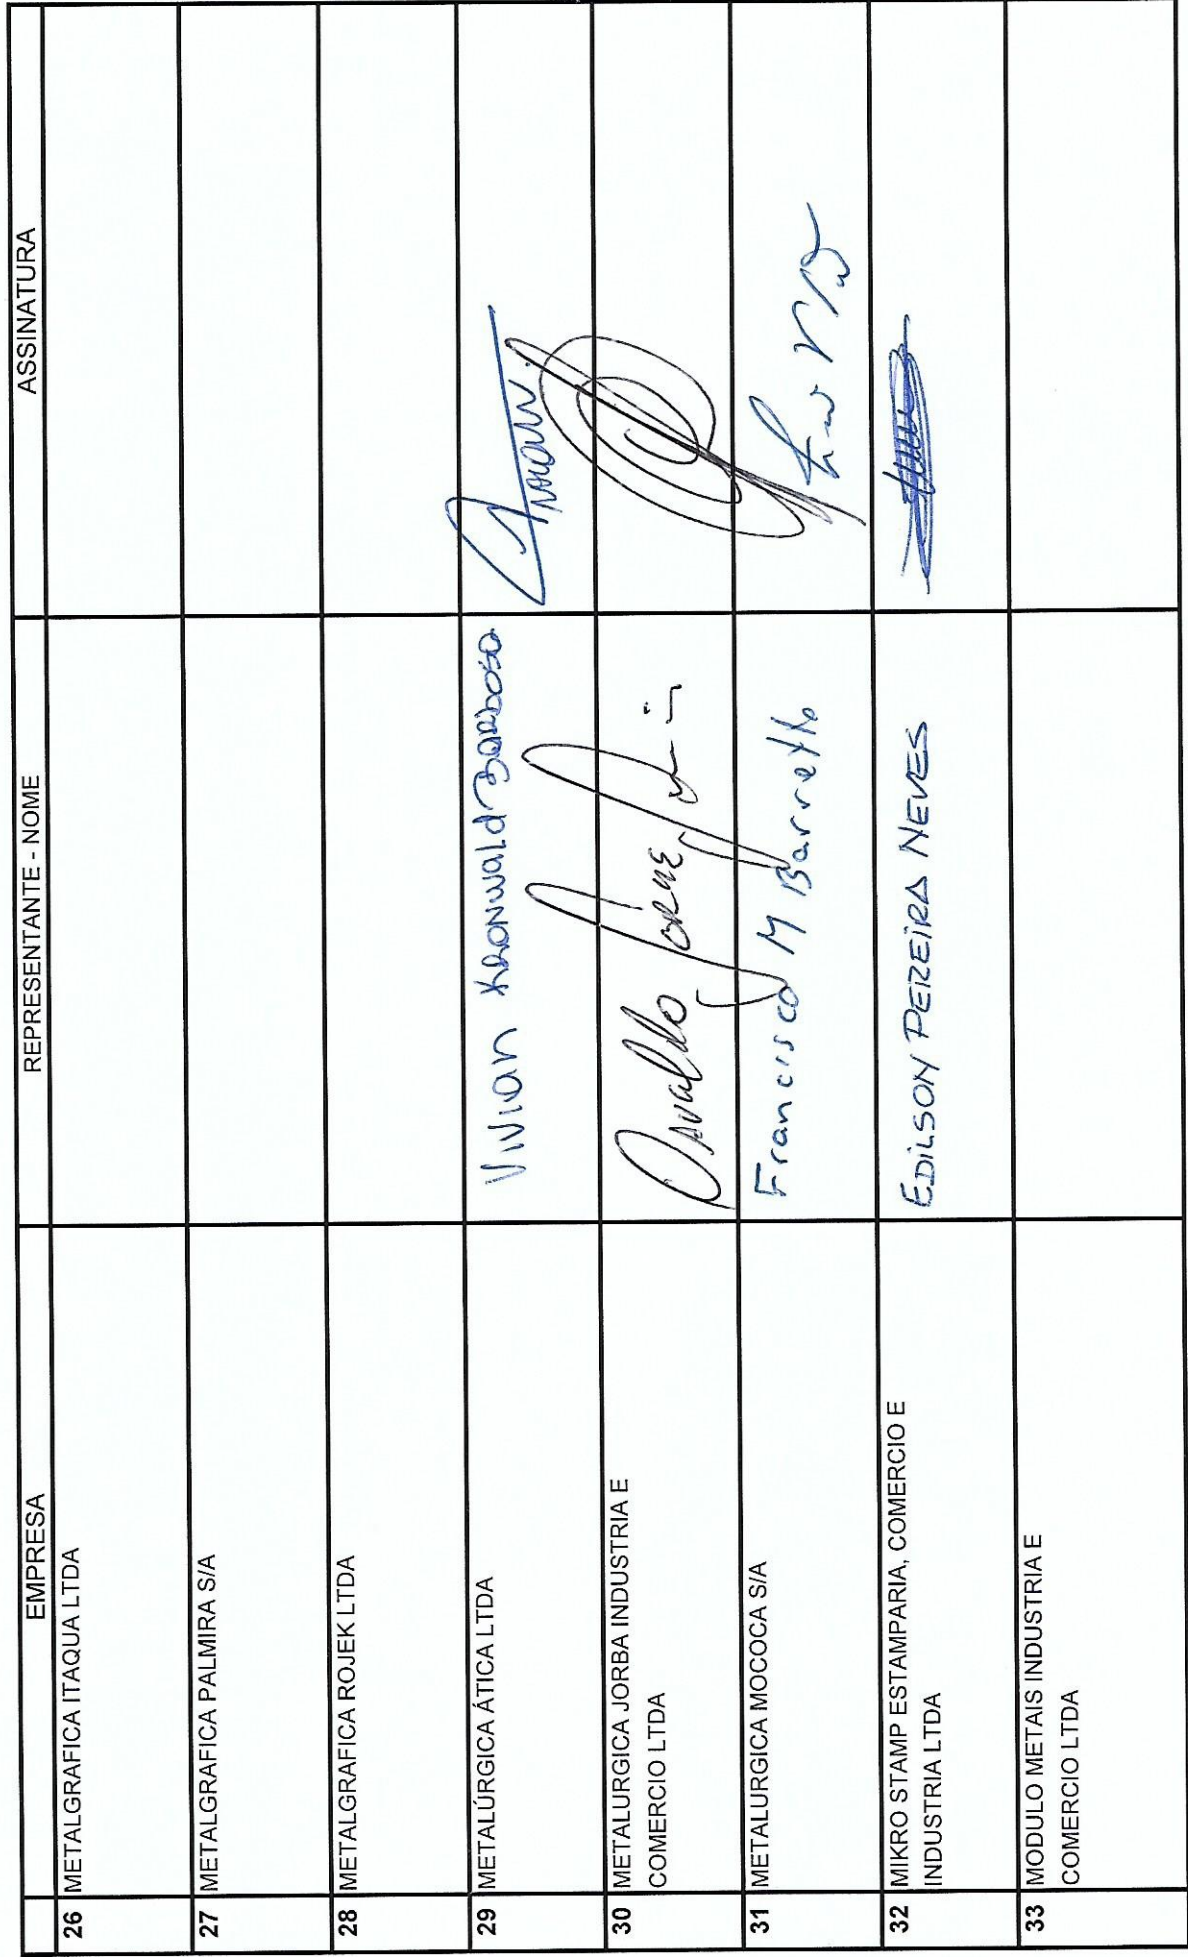 EMPRESA REPRESENTANTE - NOME ASSINATURA
26 METALGRAFICA ITAQUA LTDA
27 METALGRAFICA PALMIRA S/A
28 METALGRAFICA ROJEK LTDA
29 METALÚRGICA ÁTICA LTDA Vivian Kronwald Barbosa
30 METALURGICA JORBA INDUSTRIA E
COMERCIO LTDA Osvaldo Jorge
31 METALURGICA MOCOCA S/A Francisco M Barretto
32 MIKRO STAMP ESTAMPARIA, COMERCIO E
INDUSTRIA LTDA EDILSON PEREIRA NEVES
33 MODULO METAIS INDUSTRIA E
COMERCIO LTDA